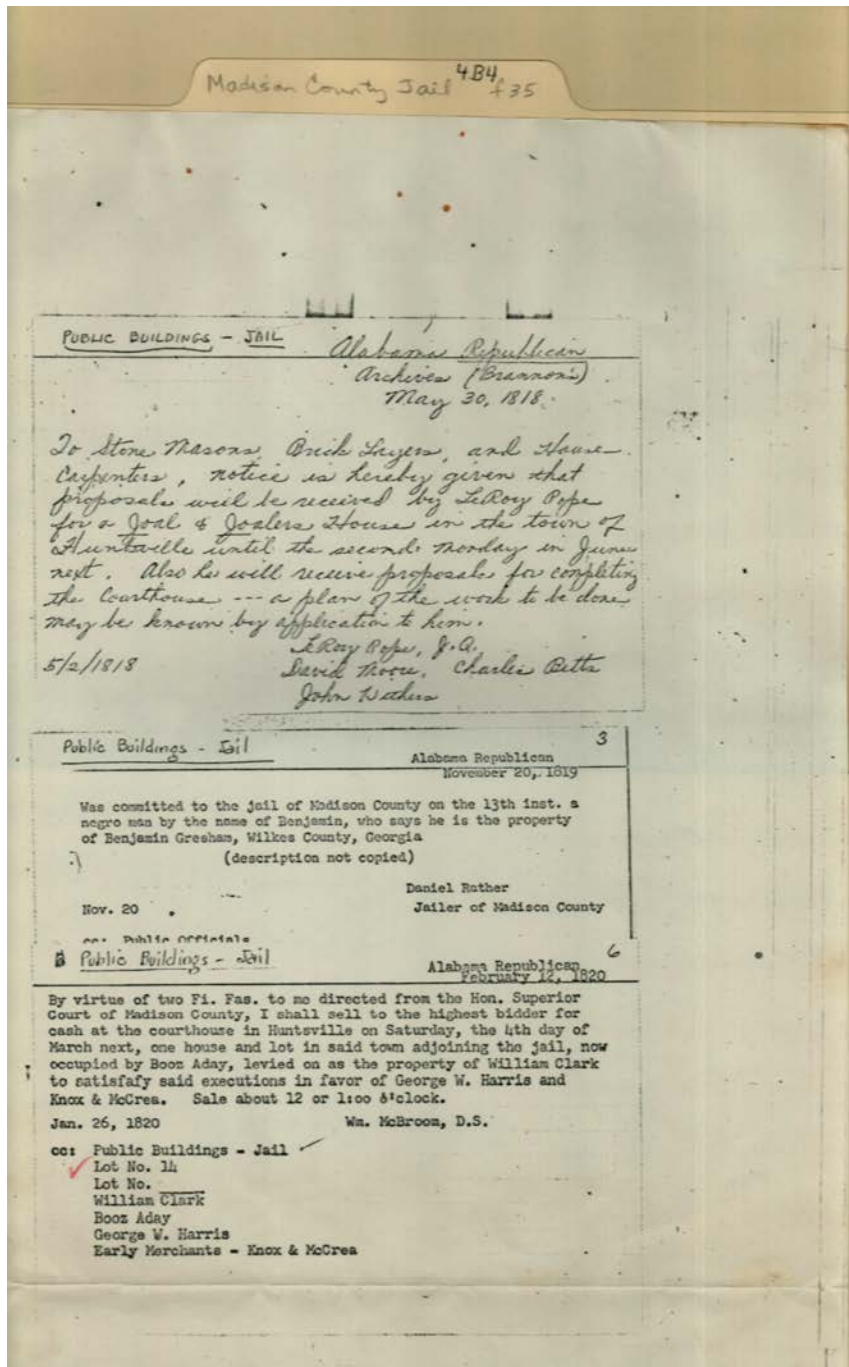 Madison County Jail 4B4 f35
PUBLIC BUILDINGS - JAIL
Alabama Republican
Archives (Brannon's)
May 30, 1818.
To Stone Masons, Brick Layers, and House
Carpenters, notice is hereby given that
proposals will be received by LeRoy Pope
for a Joal & Joalers House in the town of
Huntsville until the second Monday in June
next. Also he will receive proposals for completing
the Courthouse --- a plan of the work to be done
may be known by application to him.
LeRoy Pope, J.Q.
5/2/1818 David Moore, Charles Betts
John Withers
Public Buildings - Jail 3
Alabama Republican
November 20, 1819
Was committed to the jail of Madison County on the 13th inst. a
negro man by the name of Benjamin, who says he is the property
of Benjamin Gresham, Wilkes County, Georgia
(description not copied)
Daniel Rather
Nov. 20 Jailer of Madison County
cc: Public Officials
Public Buildings - Jail 6
Alabama Republican
February 12, 1820
By virtue of two Fi. Fas. to me directed from the Hon. Superior
Court of Madison County, I shall sell to the highest bidder for
cash at the courthouse in Huntsville on Saturday, the 4th day of
March next, one house and lot in said town adjoining the jail, now
occupied by Booz Aday, levied on as the property of William Clark
to satisfafy said executions in favor of George W. Harris and
Knox & McCrea. Sale about 12 or 1:oo o'clock.
Jan. 26, 1820 Wm. McBroom, D.S.
cc: Public Buildings - Jail
Lot No. 14
Lot No.
William Clark
Booz Aday
George W. Harris
Early Merchants - Knox & McCrea